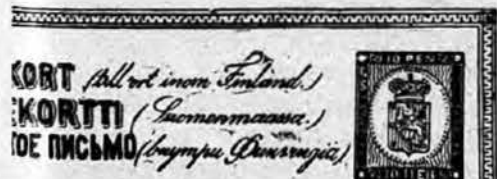 KORT (till ort inom Finland.)
KORTTI (Suomenmaassa.)
ТОЕ ПИСЬМО (внутри Финляндіи)
10 PEN